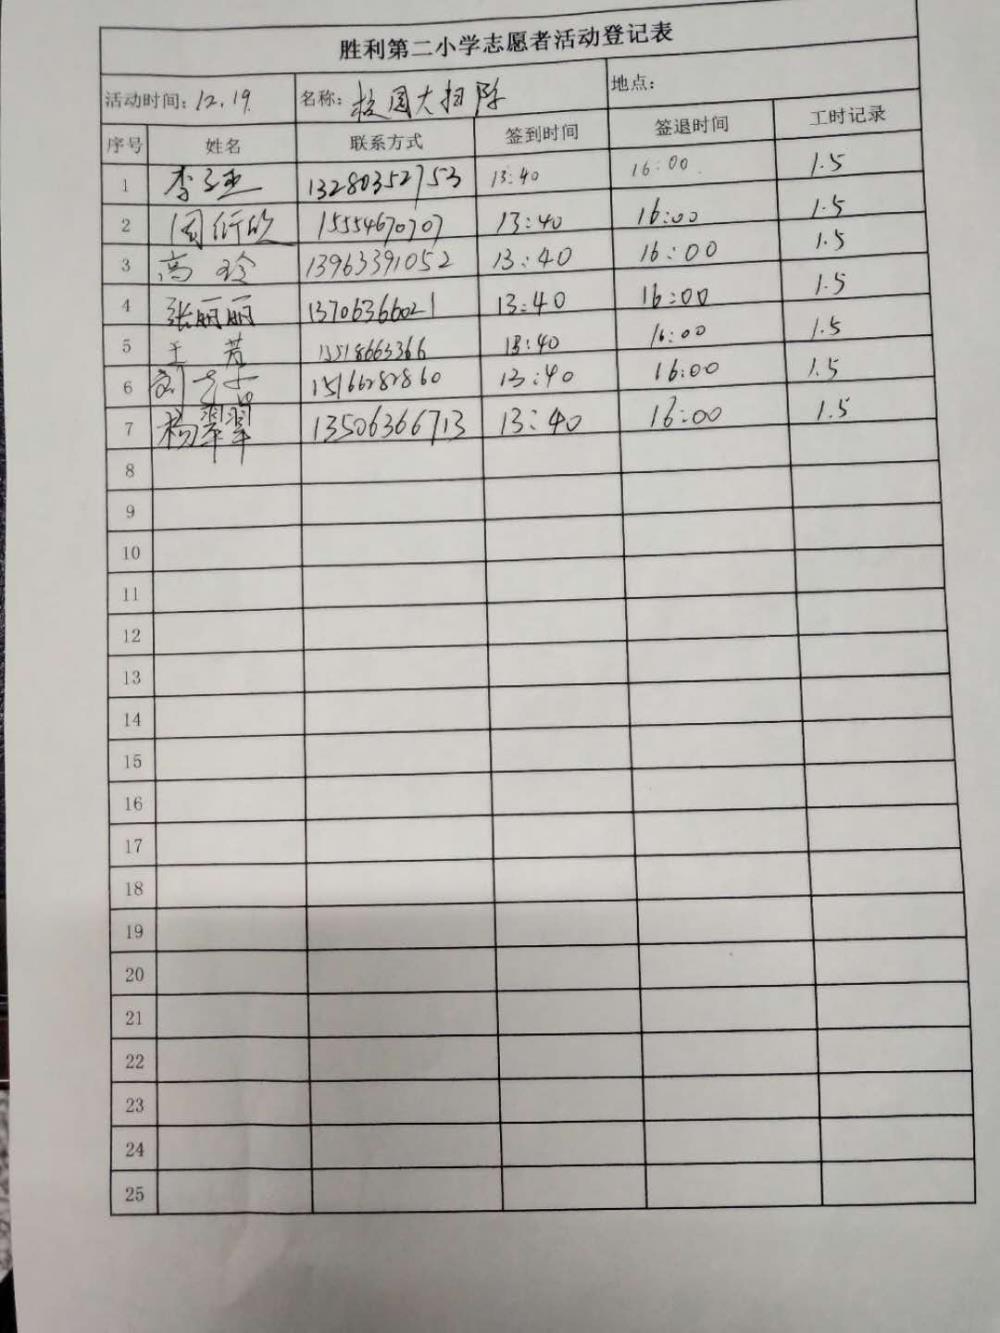 胜利第二小学志愿者活动登记表
活动时间：12.19. 名称：校园大扫除 地点：
序号 姓名 联系方式 签到时间 签退时间 工时记录
1 李 13280352753 13:40 16:00 1.5
2 周衍欣 15554670707 13:40 16:00 1.5
3 高玲 13963391052 13:40 16:00 1.5
4 张丽丽 13706366021 13:40 16:00 1.5
5 王芳 13518663366 13:40 16:00 1.5
6 刘 15166282860 13:40 16:00 1.5
7 杨翠翠 13506366713 13:40 16:00 1.5
8
9
10
11
12
13
14
15
16
17
18
19
20
21
22
23
24
25